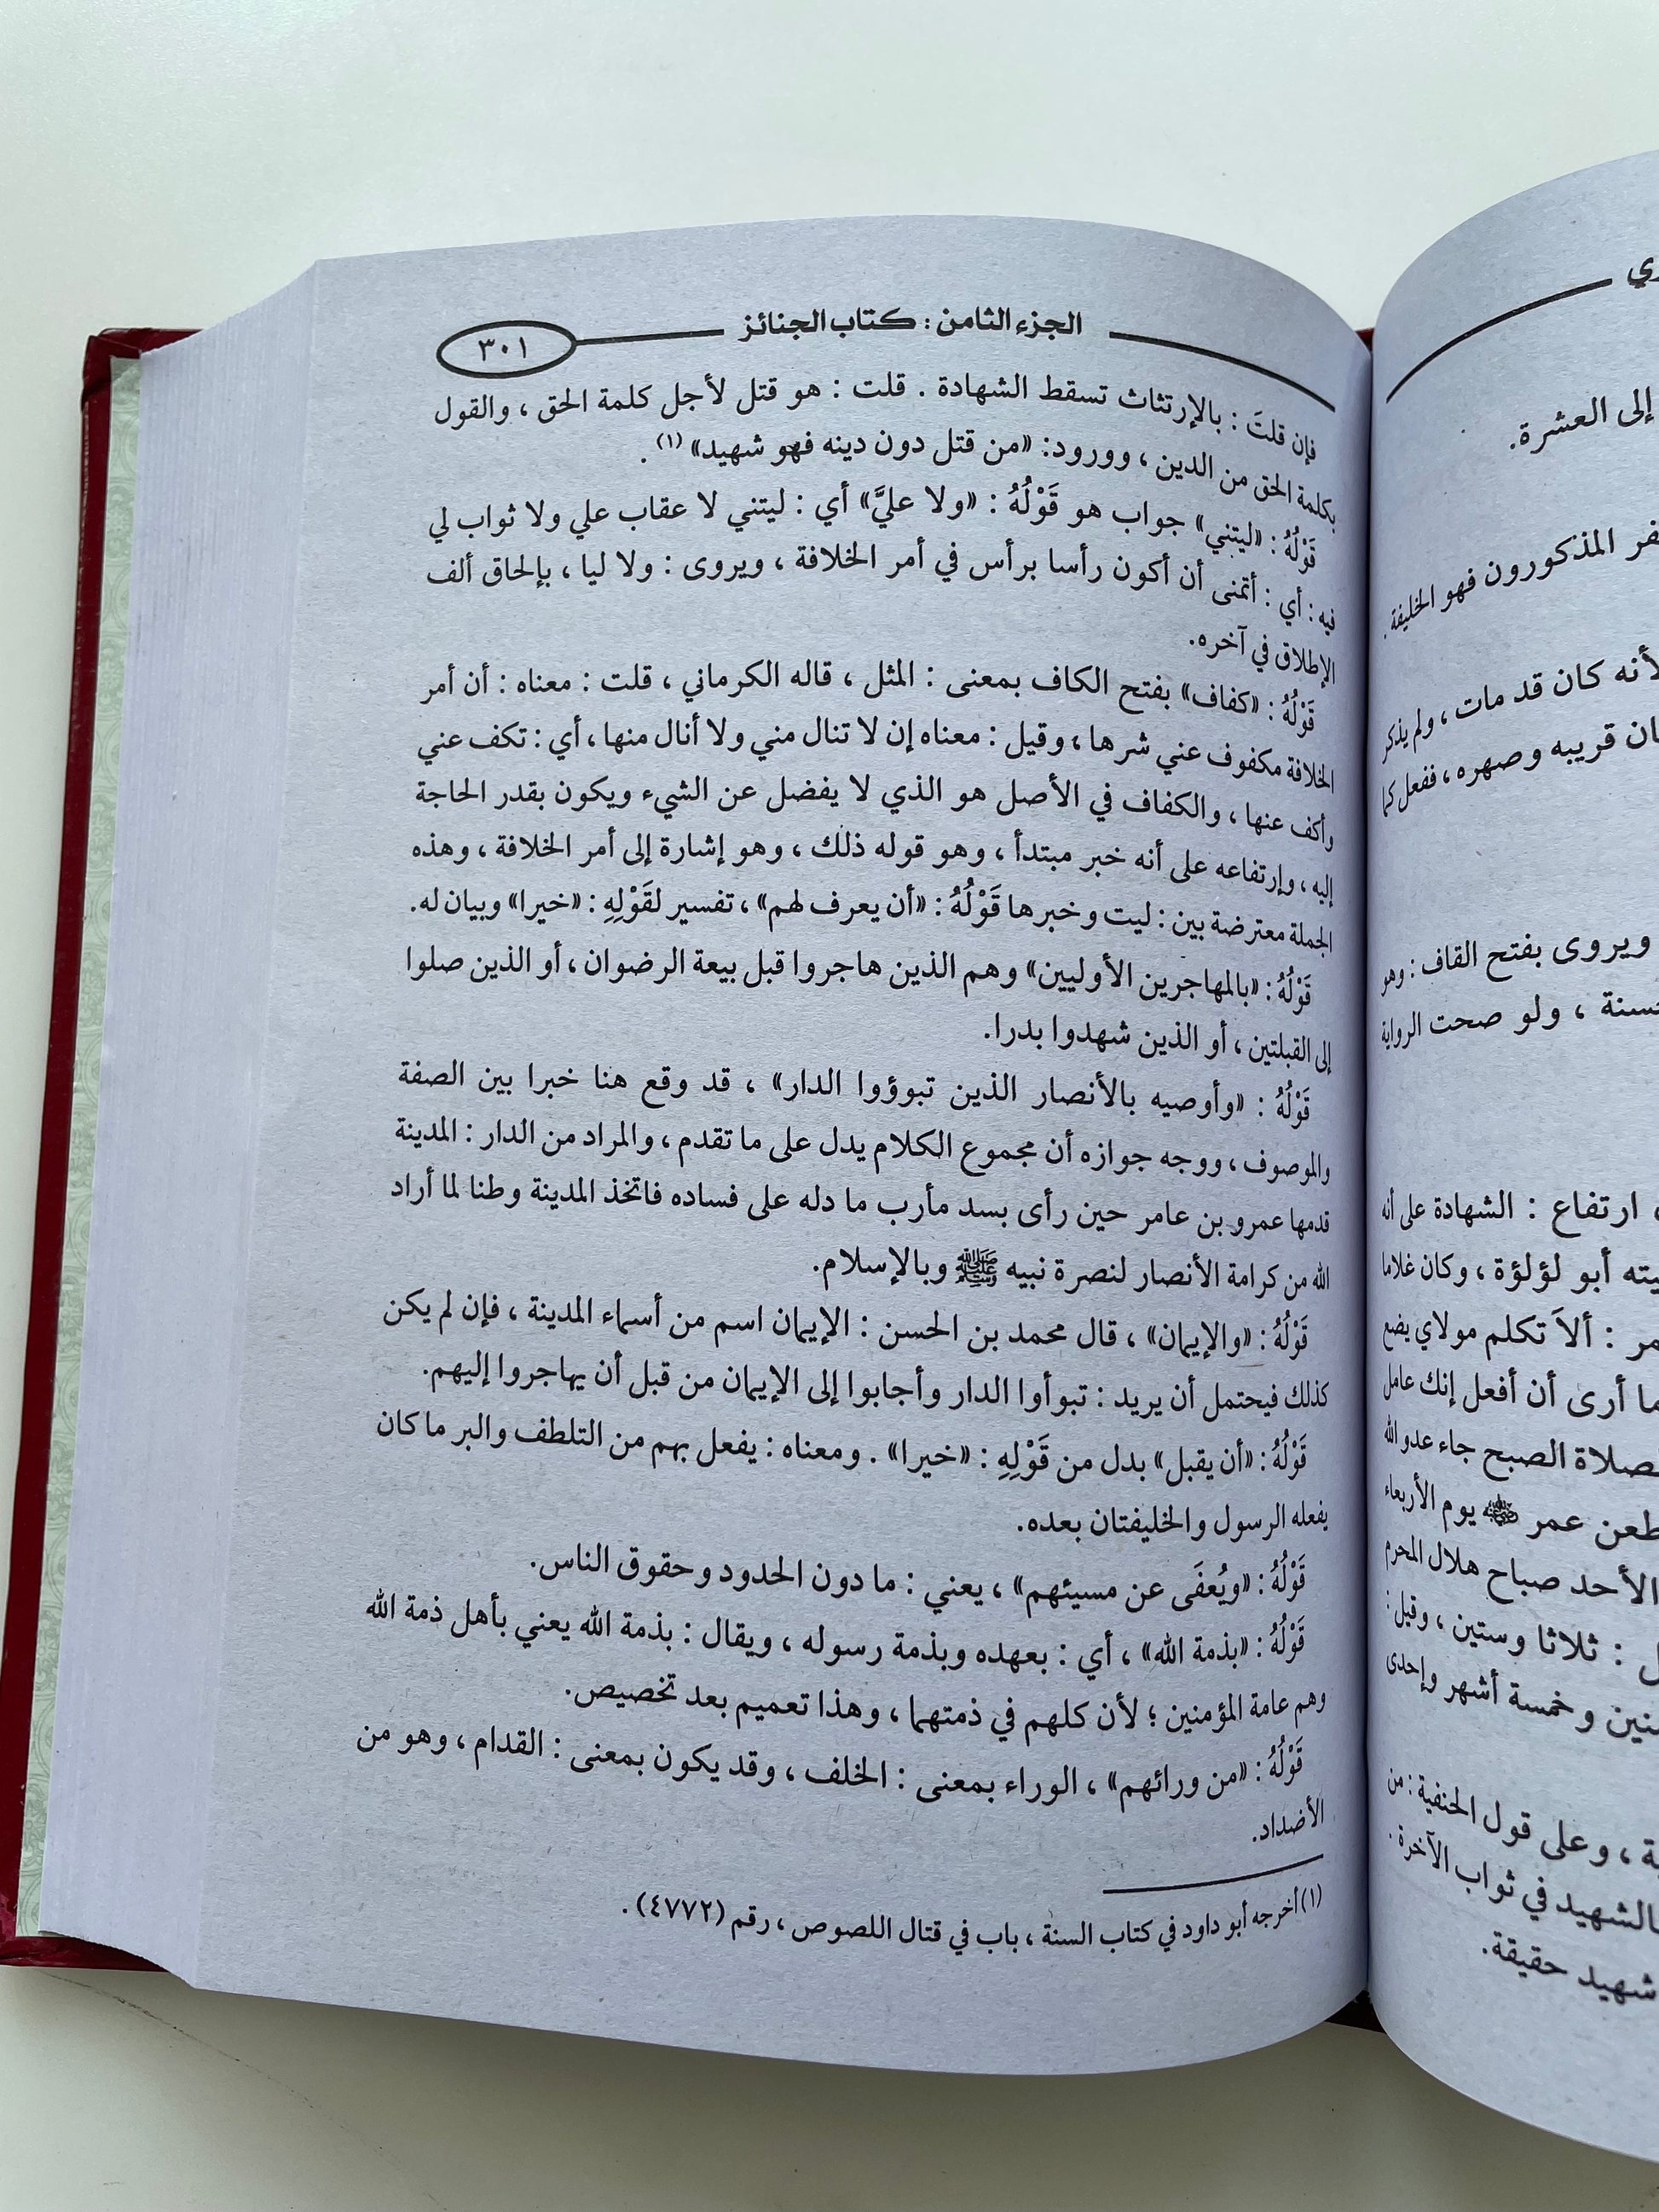 الجزء الثامن : كتاب الجنائز
٣٠١
فإن قلتَ : بالإرتثاث تسقط الشهادة . قلت : هو قتل لأجل كلمة الحق ، والقول
بكلمة الحق من الدين ، وورود: «من قتل دون دينه فهو شهيد» (١) .
قَوْلُهُ : «ليتني» جواب هو قَوْلُهُ : «ولا عليَّ» أي : ليتني لا عقاب علي ولا ثواب لي
فيه : أي : أتمنى أن أكون رأسا برأس في أمر الخلافة ، ويروى : ولا ليا ، بإلحاق ألف
الإطلاق في آخره.
قَوْلُهُ : «كفاف» بفتح الكاف بمعنى : المثل ، قاله الكرماني ، قلت : معناه : أن أمر
الخلافة مكفوف عني شرها ، وقيل : معناه إن لا تنال مني ولا أنال منها ، أي : تكف عني
وأكف عنها ، والكفاف في الأصل هو الذي لا يفضل عن الشيء ويكون بقدر الحاجة
إليه ، وإرتفاعه على أنه خبر مبتدأ ، وهو قوله ذلك ، وهو إشارة إلى أمر الخلافة ، وهذه
الجملة معترضة بين : ليت وخبرها قَوْلُهُ : «أن يعرف لهم» ، تفسير لقَوْلِهِ : «خيرا» وبيان له.
قَوْلُهُ : «بالمهاجرين الأوليين» وهم الذين هاجروا قبل بيعة الرضوان ، أو الذين صلوا
إلى القبلتين ، أو الذين شهدوا بدرا.
قَوْلُهُ : «وأوصيه بالأنصار الذين تبوؤوا الدار» ، قد وقع هنا خبرا بين الصفة
والموصوف ، ووجه جوازه أن مجموع الكلام يدل على ما تقدم ، والمراد من الدار : المدينة
قدمها عمرو بن عامر حين رأى بسد مأرب ما دله على فساده فاتخذ المدينة وطنا لما أراد
الله من كرامة الأنصار لنصرة نبيه ﷺ وبالإسلام.
قَوْلُهُ : «والإيمان» ، قال محمد بن الحسن : الإيمان اسم من أسماء المدينة ، فإن لم يكن
كذلك فيحتمل أن يريد : تبوأوا الدار وأجابوا إلى الإيمان من قبل أن يهاجروا إليهم.
قَوْلُهُ : «أن يقبل» بدل من قَوْلِهِ : «خيرا» . ومعناه : يفعل بهم من التلطف والبر ما كان
يفعله الرسول والخليفتان بعده.
قَوْلُهُ : «ويُعفَى عن مسيئهم» ، يعني : ما دون الحدود وحقوق الناس.
قَوْلُهُ : «بذمة الله» ، أي : بعهده وبذمة رسوله ، ويقال : بذمة الله يعني بأهل ذمة الله
وهم عامة المؤمنين ؛ لأن كلهم في ذمتهما ، وهذا تعميم بعد تخصيص.
قَوْلُهُ : «من ورائهم» ، الوراء بمعنى : الخلف ، وقد يكون بمعنى : القدام ، وهو من
الأضداد.
(١) أخرجه أبو داود في كتاب السنة ، باب في قتال اللصوص ، رقم (٤٧٧٢) .
إلى العشرة.
المذكورون فهو الخليفة .
لأنه كان قد مات ، ولم يذكر
قريبه وصهره ، ففعل كما
ويروى بفتح القاف : وهو
، ولو صحت الرواية
ارتفاع : الشهادة على أنه
أبو لؤلؤة ، وكان غلاما
: ألاَ تكلم مولاي يضع
ما أرى أن أفعل إنك عامل
صلاة الصبح جاء عدو الله
طعن عمر ﷺ يوم الأربعاء
الأحد صباح هلال المحرم
: ثلاثا وستين ، وقيل :
وخمسة أشهر وإحدى
، وعلى قول الحنفية : من
الشهيد في ثواب الآخرة .
شهيد حقيقة.